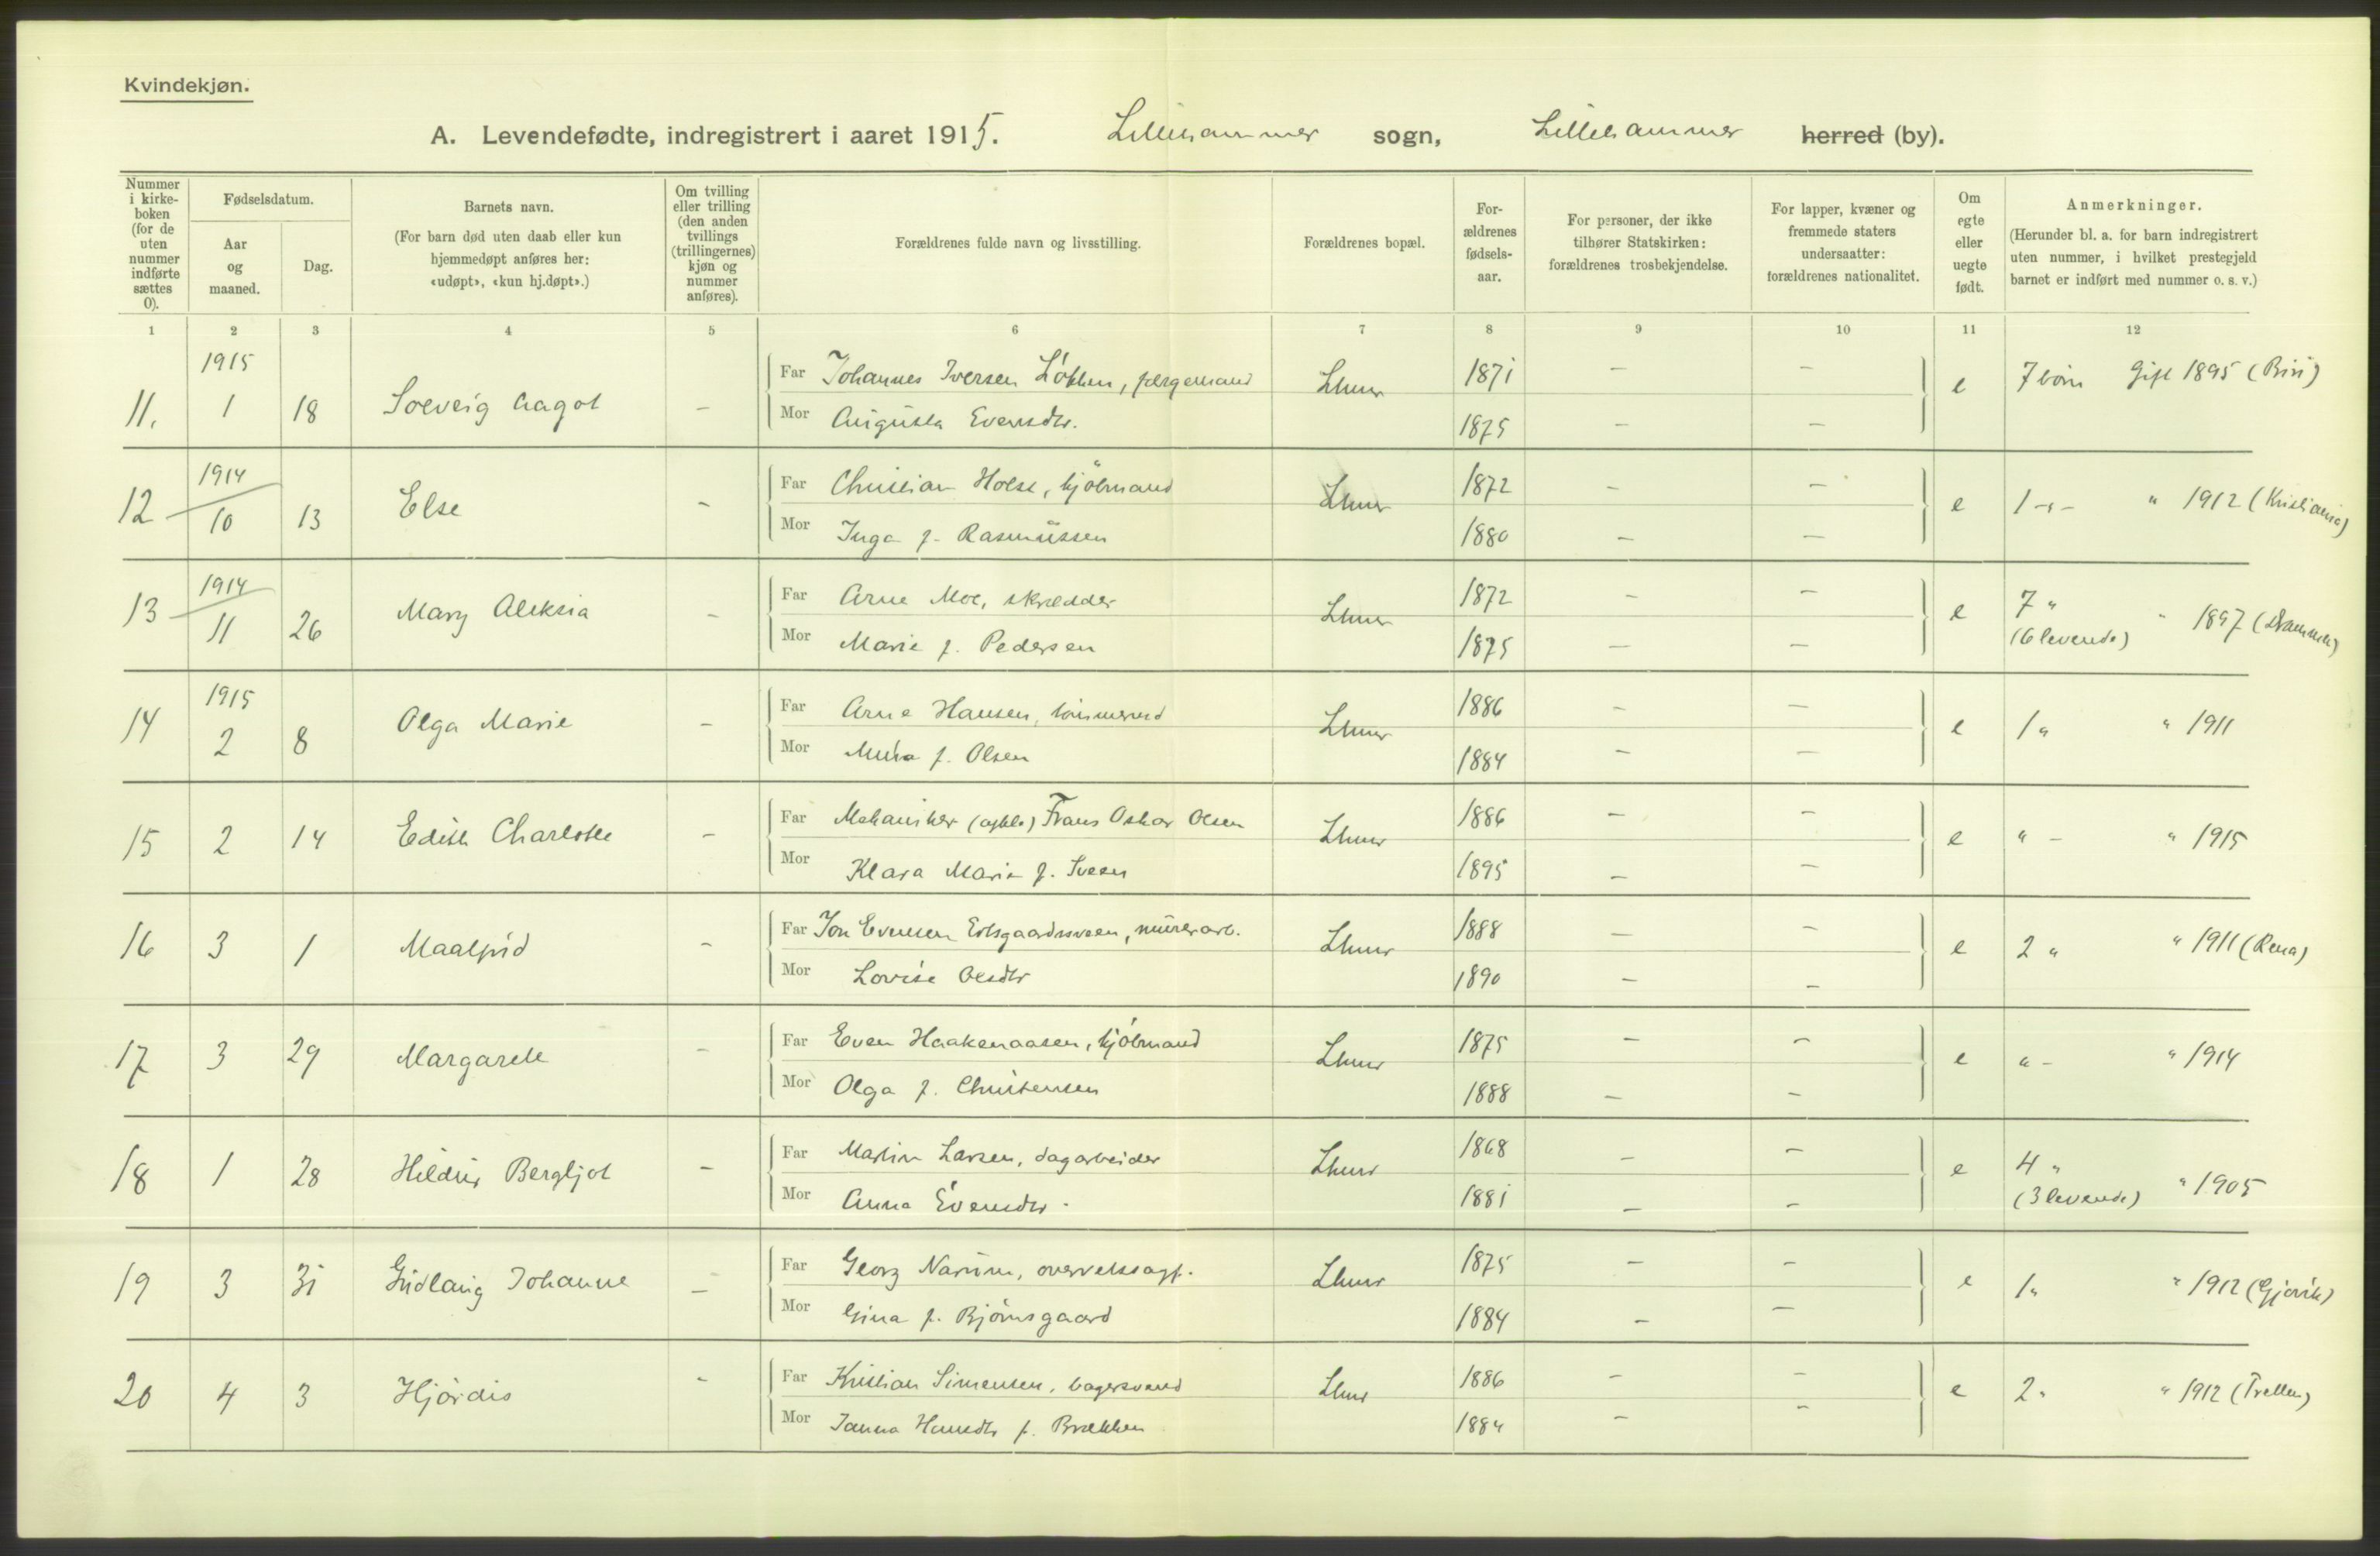 Kvindekjøn.
A. Levendefødte, indregistrert i aaret 1915. Lillehammer sogn, Lillehammer herred (by).
Nummer i kirkeboken (for de uten nummer indførte sættes 0).
Fødselsdatum.
Aar og maaned.
Dag.
Barnets navn.
(For barn død uten daab eller kun hjemmedøpt anføres her: «udøpt», «kun hj.døpt».)
Om tvilling eller trilling (den anden tvillings (trillingernes) kjøn og nummer anføres).
Forældrenes fulde navn og livsstilling.
Forældrenes bopæl.
Forældrenes fødselsaar.
For personer, der ikke tilhører Statskirken: forældrenes trosbekjendelse.
For lapper, kvæner og fremmede staters undersaatter: forældrenes nationalitet.
Om egte eller uegte født.
Anmerkninger.
(Herunder bl. a. for barn indregistrert uten nummer, i hvilket prestegjeld barnet er indført med nummer o. s. v.)
1 2 3 4 5 6 7 8 9 10 11 12
1915
11. 1 18 Solveig Aagot – Far Johannes Iversen Løkken, færgemand Lhmr 1871 – – e 7 børn Gift 1895 (Biri)
Mor Augusta Evensdtr. 1875 – –
1914
12 10 13 Else – Far Christian Holst, kjøbmand Lhmr 1872 – – e 1 -"- " 1912 (Kristiania)
Mor Inga f. Rasmussen 1880 – –
1914
13 11 26 Mary Aleksia – Far Arne Moe, skrædder Lhmr 1872 – – e 7 " " 1897 (Drammen)
(6 levende)
Mor Marie f. Pedersen 1875 – –
1915
14 2 8 Olga Marie – Far Arne Hansen, Lhmr 1886 – – e 1 " " 1911
Mor f. Olsen 1884 – –
15 2 14 Edith Charlotte – Far Mekaniker (cykle) Frans Oskar Olsen Lhmr 1886 – – e " – " 1915
Mor Klara Marie f. 1895 – –
16 3 1 Maalfrid – Far Jon Evensen murerarb. Lhmr 1888 – – e 2 " " 1911 (Rena)
Mor Lovise Olsdtr 1890 – –
17 3 29 Margarete – Far Even Haakenaasen, kjøbmand Lhmr 1875 – – e " – " 1914
Mor Olga f. Christensen 1888 – –
18 1 28 Hildur Bergljot – Far Martin Larsen, dagarbeider Lhmr 1868 – – e 4 "
(3 levende) " 1905
Mor Anna Evensdtr. 1881 – –
19 3 31 Gudlaug Johanne – Far Georg Narum, Lhmr 1875 – – e 1 " " 1912 (Gjøvik)
Mor Gina f. Bjørnsgaard 1884 – –
20 4 3 Hjørdis – Far Kristian Simensen, bagersvend Lhmr 1886 – – e 2 " " 1912 (Tretten)
Mor Janna Hansdtr f. Brækken 1884 – –